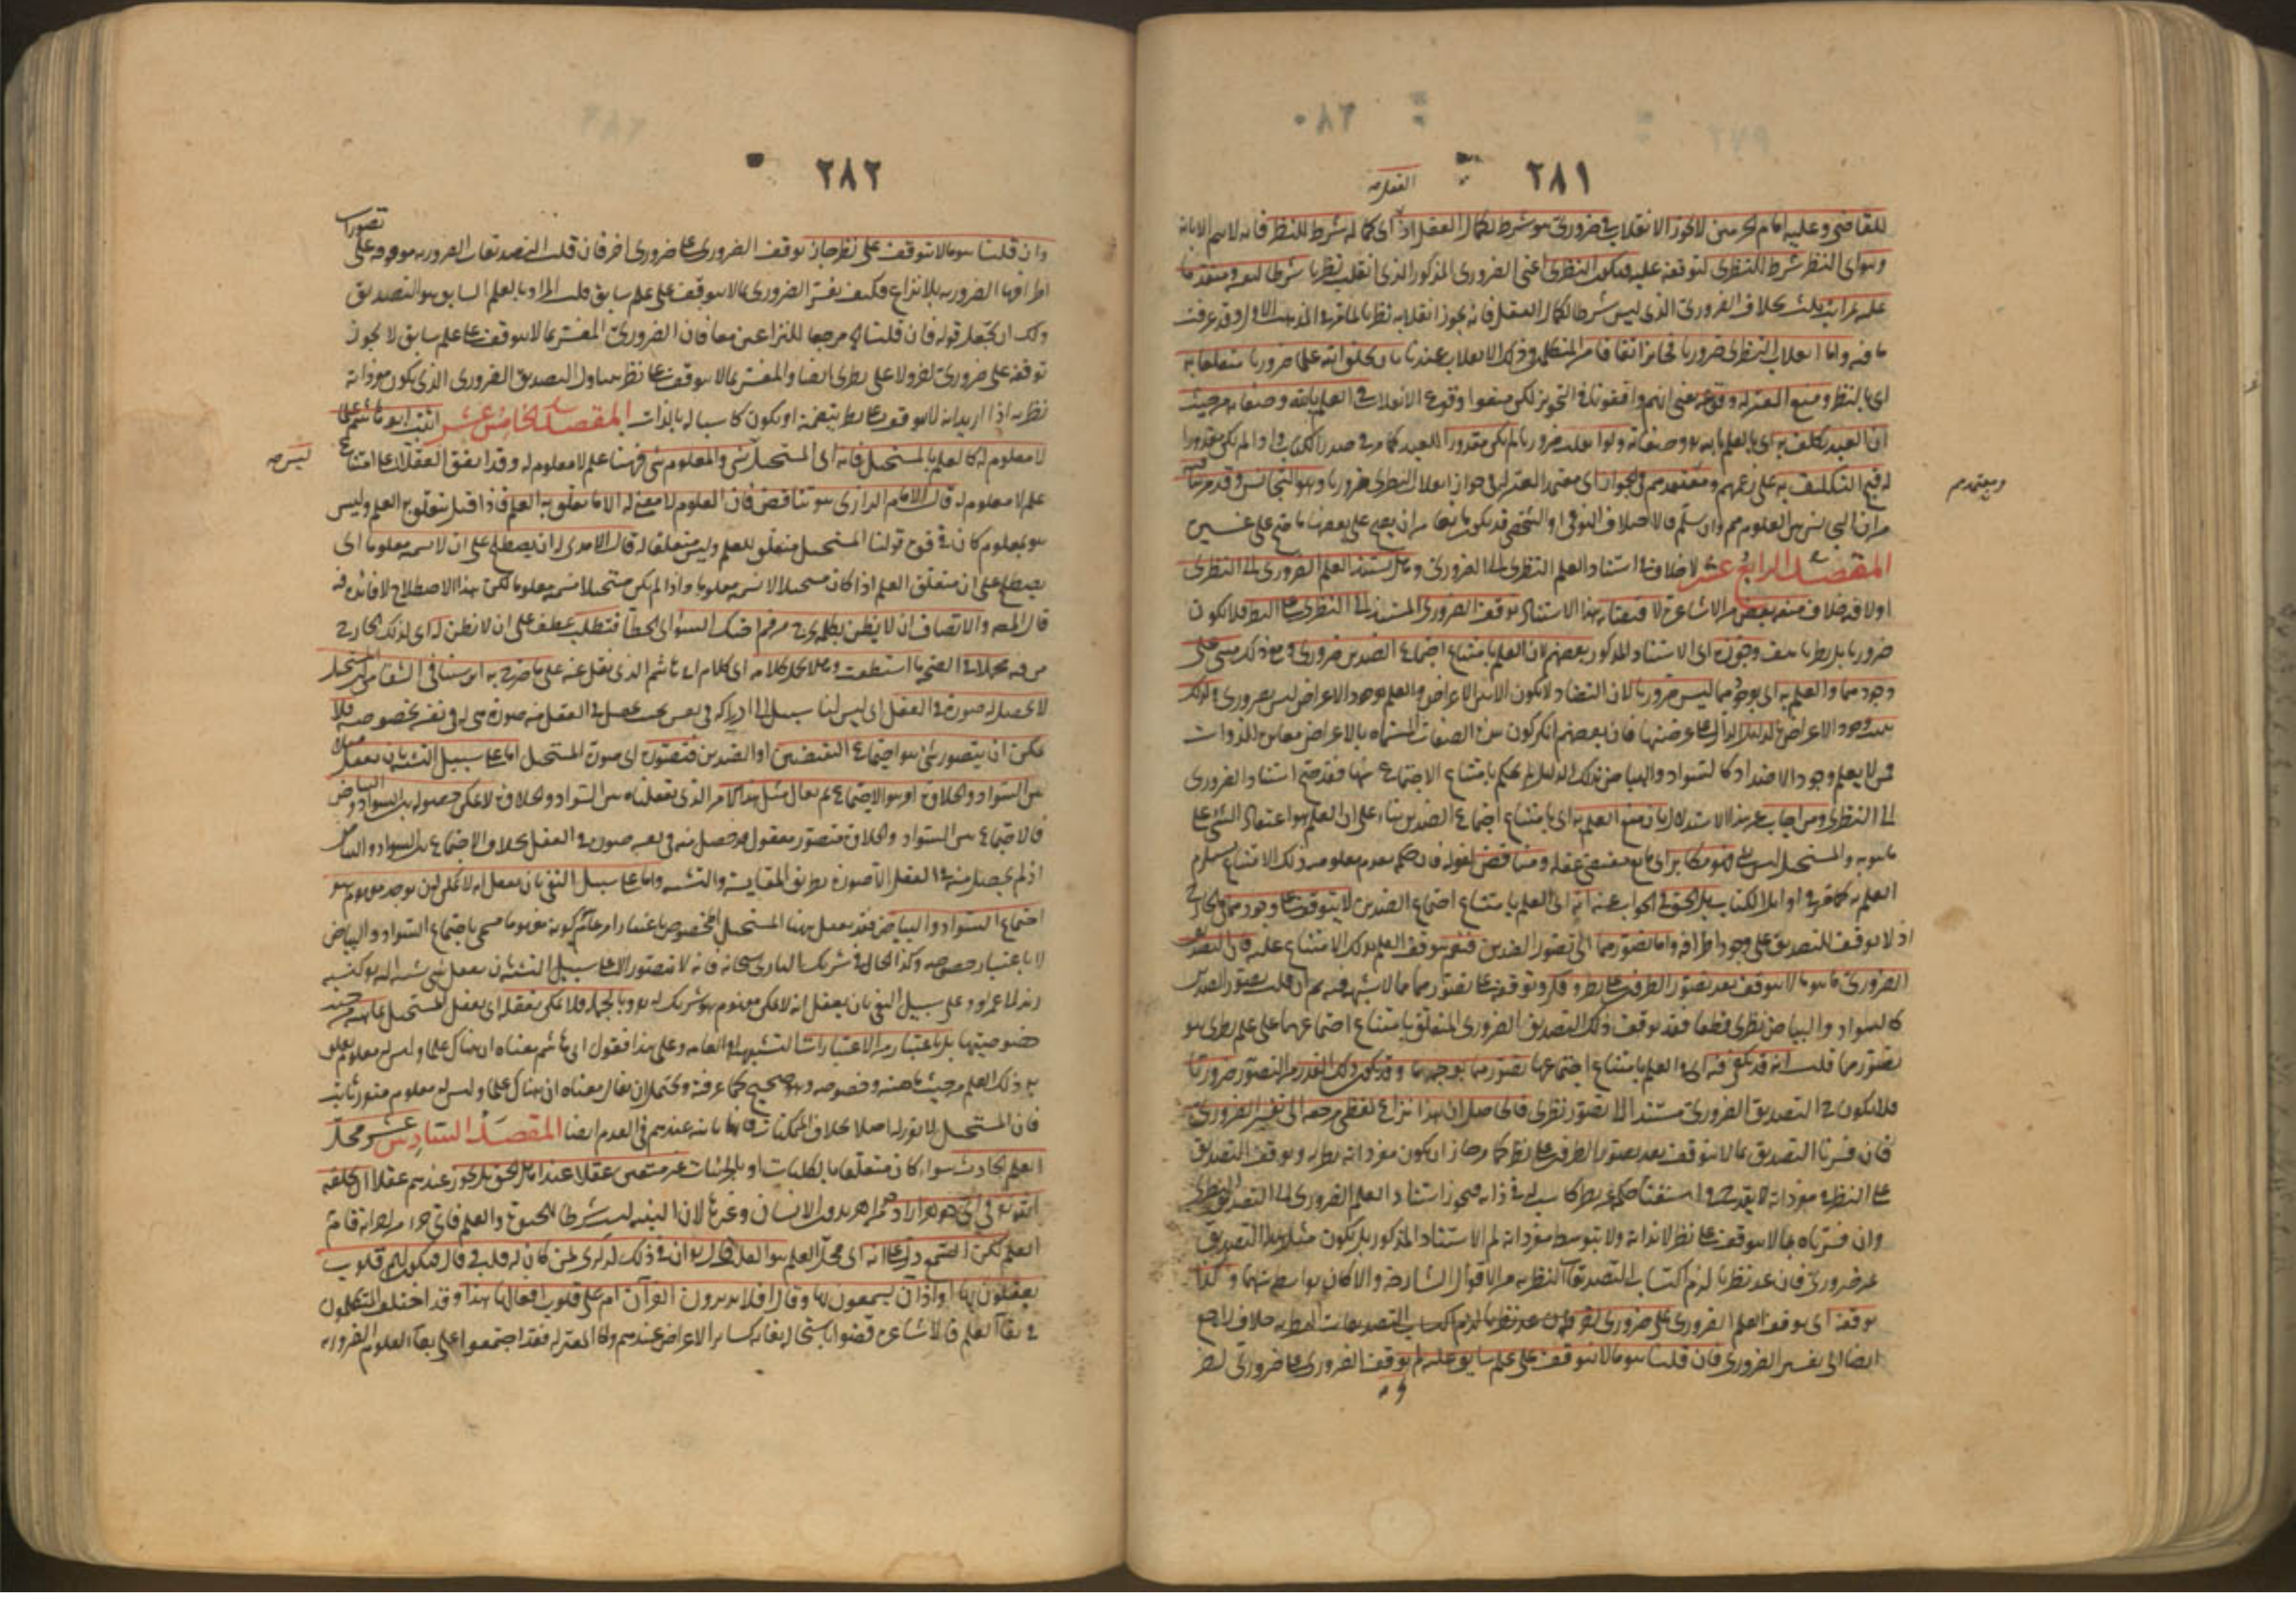 ٢٨١
للقاضي وعليه امام الحرمين لا يجوز الانقلاب في ضروري هو شرط لكمال العقل اذ اي كماله شرط للنظر فانه لا يتم الا به
وهو اي النظر شرط للنظري لتوقفه عليه فيكون النظري اعني الضروري المذكور الذي انقلب نظريا شرطا لنفسه ومتقدما
عليه بمراتب ثلث بخلاف الضروري الذي ليس شرطا لكمال العقل فانه يجوز انقلابه نظريا لما مر في المذهب الاول وقد عرفت
ما فيه واما انقلاب النظري ضروريا فجائز اتفاقا من المتكلمين وذلك الانقلاب عندنا بان يخلق الله علما ضروريا متعلقا به
اي بالنظري ومنع المعتزلة وقوعه يعني انهم وافقونا في التجويز لكن منعوا وقوع الانقلاب في العلم بالله وصفاته من حيث
ان العبد مكلف به اي بالعلم بالله وصفاته ولو انقلب ضروريا لم يكن مقدورا للعبد كما مر في صدر الكتاب واذا لم يكن مقدورا
له قبح التكليف به على زعمهم ومعتمدهم في الجواز اي معتمد المعتزلة في جواز انقلاب النظري ضروريا هو التجانس وقد مر ما فيه
ومعتمدهم
من ان التجانس بين العلوم مم وان سلم فالاختلاف النوعي او الشخصي قد يكون مانعا من ان يصح على بعضها ما صح على غيره
المقصد الرابع عشر لا خلاف في استناد العلم النظري الى الضروري وهل يستند العلم الضروري الى النظري
اولا فيه خلاف منعه بعض من الاشاعرة لاقتضائه هذا الاستناد توقف الضروري المستند الى النظري على النظر فلا يكون
ضروريا بل نظريا هف وجوزه اي الاستناد المذكور بعضهم لان العلم بامتناع اجتماع الضدين ضروري ومع ذلك مبني على
وجودهما والعلم به اي بوجودهما ليس ضروريا لان التضاد لا يكون الا بين الاعراض والعلم بوجود الاعراض ليس بضروري ولذلك
يثبت وجود الاعراض بالدليل الدال على عرضيتها فان بعضهم انكر كون هذه الصفات المسماة بالاعراض مغايرة للذوات
فمن لا يعلم وجود الاضداد كالسواد والبياض بذلك الدليل لم يحكم بامتناع الاجتماع بينها فقد صح استناد الضروري
الى النظري ومن اجاب عن هذا الاستدلال بان منع العلم به اي بامتناع اجتماع الضدين بناء على ان العلم هو اعتقاد الشيء على
ما هو به والمستحيل ليس بشيء فهو مكابر اي مانع مقتضى عقله ومناقض لقوله فان حكمه بعدم معلوميته ذلك الامتناع يستلزم
العلم به كما مر في اوائل الكتاب بل الحق في الجواب عنه انه اي العلم بامتناع اجتماع الضدين لا يتوقف على وجودهما في الخارج
اذ لا يتوقف التصديق على وجود اطرافه واما تصورهما اي تصور الضدين فنعم يتوقف العلم بذلك الامتناع عليه فان التصديق
الضروري ما هو ما لا يتوقف بعد تصور الطرفين على نظر وفكر وتوقفه على تصورهما مما لا شبهة فيه ثم ان قلت تصور الضدين
كالسواد والبياض نظري قطعا فقد توقف ذلك التصديق الضروري المتعلق بامتناع اجتماعهما على علم نظري هو
تصورهما قلت انه قد يكفي فيه اي في العلم بامتناع اجتماعهما تصورهما بوجه ما وقد يكون ذلك القدر من التصور ضروريا
فلا يكون في التصديق الضروري مستندا الى تصور نظري فالحاصل ان هذا نزاع لفظي مرجعه الى تفسير الضروري
فان فسرنا التصديق بما لا يتوقف بعد تصور الطرفين على نظر كما مر جاز ان يكون مفرداته نظرية وتوقف التصديق
على النظر في مفرداته لا يقدح في استغنائه عن نظر كاسب له في ذاته فيجوز استناد العلم الضروري الى التصديق النظري
وان فسرناه بما لا يتوقف على نظر لا بذاته ولا بتوسط مفرداته لم الاستناد المذكور بل يكون مثل هذا التصديق
غير ضروري فان عد نظريا لزم اكتساب التصديقات النظرية من الاقوال الشارحة والا كان بواسطة بينهما وكذا
توقفه اي توقف العلم الضروري على ضروري اخر
ايضا الى تفسير الضروري فان قلنا هو ما لا يتوقف على علم سابق عليه لم يتوقف الضروري على ضروري اخر
٢٨٢
وان قلنا هو ما لا يتوقف على نظر جاز توقف الضروري على ضروري اخر فان قلت التصديقات الضرورية موقوفة على تصورات
اطرافها الضرورية بلا نزاع فكيف يفسر الضروري بما لا يتوقف على علم سابق قلت المراد بالعلم السابق هو التصديق
ولك ان تجعل قوله فان قلنا الى مرجعا للنزاعين معا فان الضروري المفسر بما لا يتوقف على علم سابق لا يجوز
توقفه على ضروري اخر ولا على نظري ايضا والمفسر بما لا يتوقف على نظر يتناول التصديق الضروري الذي يكون مفرداته
نظرية اذا اريد انه لا يتوقف على نظر يتضمنه او يكون كاسبا له بالذات المقصد الخامس عشر اثبت ابو هاشم علما
لا معلوم له كالعلم بالمستحيل فانه اي المستحيل ليس بشيء والمعلوم شيء فهنا علم لا معلوم له وقد اتفق العقلاء على امتناع
علم لا معلوم له قال الامام الرازي هو تناقض فان المعلوم لا معنى له الا ما تعلق به العلم فاذا قيل يتعلق به العلم وليس
هو بمعلوم كان في قوة قولنا المستحيل متعلق للعلم وليس متعلقا له قال الآمدي له ان يصطلح على ان لا يسمه معلوما اي
يصطلح على ان متعلق العلم اذا كان مستحيلا لا نسميه معلوما واذا لم يكن مستحيلا نسميه معلوما لكن هذا الاصطلاح لا فائدة فيه
قال المصنف والانصاف ان لا يظن بكلمة خرجت من فم اخيك السوء اي الخطأ فتطلب عطف على ان لا تظن له اي لذلك الخارج
من فيه محملا في الصحة ما استطعت ومحمل كلامه اي كلام ابي هاشم الذي نقل عنه على ما صرح به ابن سينا في الشفاء من ان المستحيل
لا يحصل له صورة في العقل اي ليس لنا سبيل الى ادراكه في نفسه بحيث يحصل في العقل منه صورة هي له في نفسه بخصوصه فلا
يمكن ان يتصور شيء هو اجتماع النقيضين او الضدين فتصوره اي صورة المستحيل اما على سبيل التشبيه بان يعقل
بين السواد والحلاوة امر هو الاجتماع ثم يقال مثل هذا الامر الذي تعقلناه بين السواد والحلاوة لا يمكن حصوله بين السواد والبياض
فالاجتماع بين السواد والحلاوة متصور معقول قد حصل منه في نفسه صورة في العقل بخلاف الاجتماع بين السواد والبياض
اذ لم يحصل منه في العقل الا صورة بطريق المقايسة والتشبيه واما على سبيل النفي بان يعقل انه لا يمكن ان يوجد مفهوم هو
اجتماع السواد والبياض فقد يعقل ههنا المستحيل المخصوص باعتبار امر عام ككونه مفهوما مسمى باجتماع السواد والبياض
لا باعتبار خصوصه وكذا الحال في شريك الباري سبحانه فانه لا نتصوره الا على سبيل التشبيه بان نعقل شيء نسبته اليه كنسبة
زيد لعمرو وعلى سبيل النفي بان يعقل انه لا يمكن مفهوم هو شريك له وبالجملة فلا يمكن تعقله اي تعقل المستحيل بماهيته من حيث
خصوصيتها بل باعتبار من الاعتبارات التشبيهية او العامة وعلى هذا فقول ابي هاشم معناه ان هناك علما وليس له معلوم تعلق
به ذلك العلم من حيث ماهيته وخصوصه وهو صحيح كما عرفته ويحتمل ان يقال معناه ان هناك علما وليس له معلوم متقرر ثابت
فان المستحيل لا تقرر له اصلا بخلاف الممكنات فانها ثابتة عندهم في العدم ايضا المقصد السادس عشر محل
العلم الحادث سواء كان متعلقا بالكليات او بالجزئيات غير متعين عقلا عند اهل الحق بل يجوز عندهم عقلا ان يخلقه
الله تعالى في اي جوهر اراد من جواهر بدن الانسان وغيرها لان البنية ليست شرطا للحيوة والعلم فاي جزء من اجزائه قام به
العلم لكن السمع دل على انه اي محل العلم هو القلب قال الله تعالى ان في ذلك لذكرى لمن كان له قلب وقال فتكون لهم قلوب
يعقلون بها او آذان يسمعون بها وقال افلا يتدبرون القرآن ام على قلوب اقفالها هذا وقد اختلف المتكلمون
في بقاء العلم فالاشاعرة قضوا باستحالة بقائه كسائر الاعراض عندهم واما المعتزلة فقد اجتمعوا على بقاء العلوم الضرورية